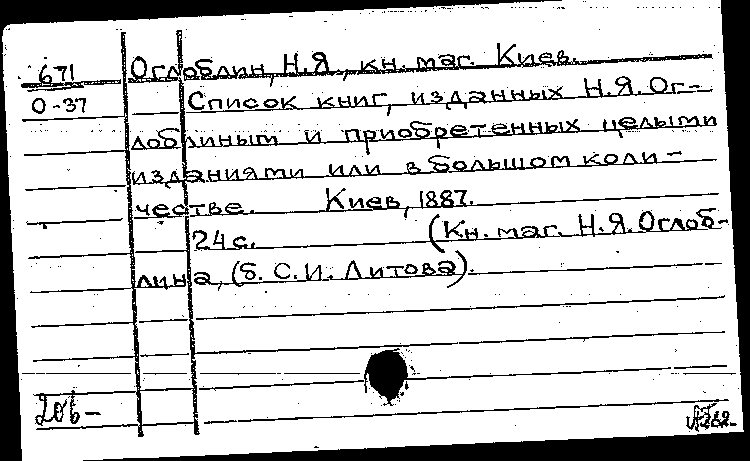 671 Оглоблин, Н.Я., кн. маг. Киев.
О-37 Список книг, изданных Н.Я. Ог-
лоблиным и приобретенных целыми
изданиями или в большом коли-
честве. Киев, 1887.
24 с. (Кн. маг. Н.Я. Оглоб-
лина, (б. С.И. Литова).